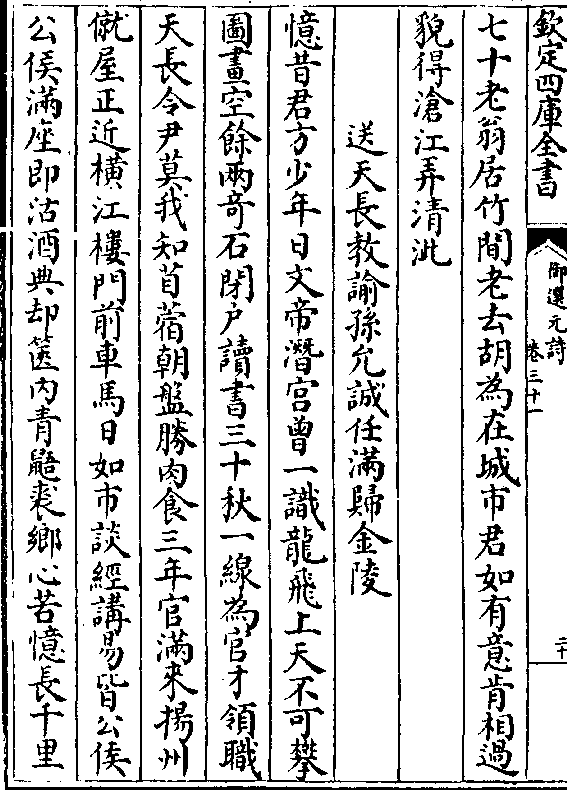 欽定四庫全書
御選元詩
卷三十一
二十
七十老翁居竹間老去胡為在城市君如有意肯相過
貌得滄江弄清泚
送天長教諭孫允誠任滿歸金陵
憶昔君方少年日文帝潛宫曾一識龍飛上天不可攀
圖畫空餘兩竒石閉户讀書三十秋一線為官才領職
天長令尹莫我知苜蓿朝盤勝肉食三年官滿來揚州
僦屋正近横江樓門前車馬日如市談經講易皆公侯
公侯滿座即沽酒典却篋内青鼯裘鄉心苦憶長千里